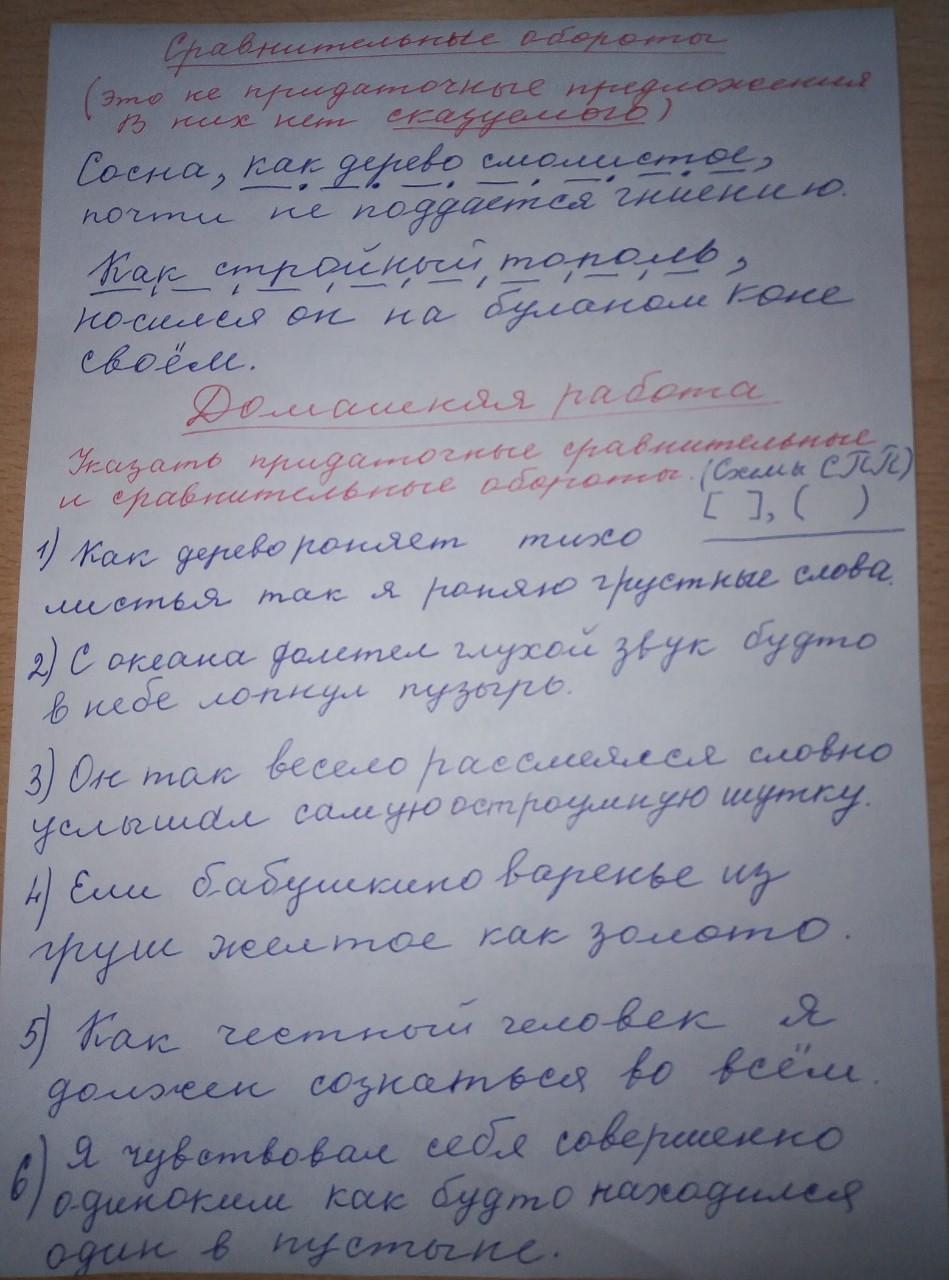 Сравнительные обороты
(Это не придаточные предложения
В них нет сказуемого)
Сосна, как дерево смолистое,
почти не поддаётся гниению.
Как стройный тополь,
носился он на буланом коне
своём.
Домашняя работа
Указать придаточные сравнительные
и сравнительные обороты. (Схемы СПП)
[ ], ( )
1) Как дерево роняет тихо
листья так я роняю грустные слова.
2) С океана долетел глухой звук будто
в небе лопнул пузырь.
3) Он так весело рассмеялся словно
услышал самую остроумную шутку.
4) Ели бабушкино варенье из
груш желтое как золото.
5) Как честный человек я
должен сознаться во всём.
6) Я чувствовал себя совершенно
одиноким как будто находился
один в пустыне.